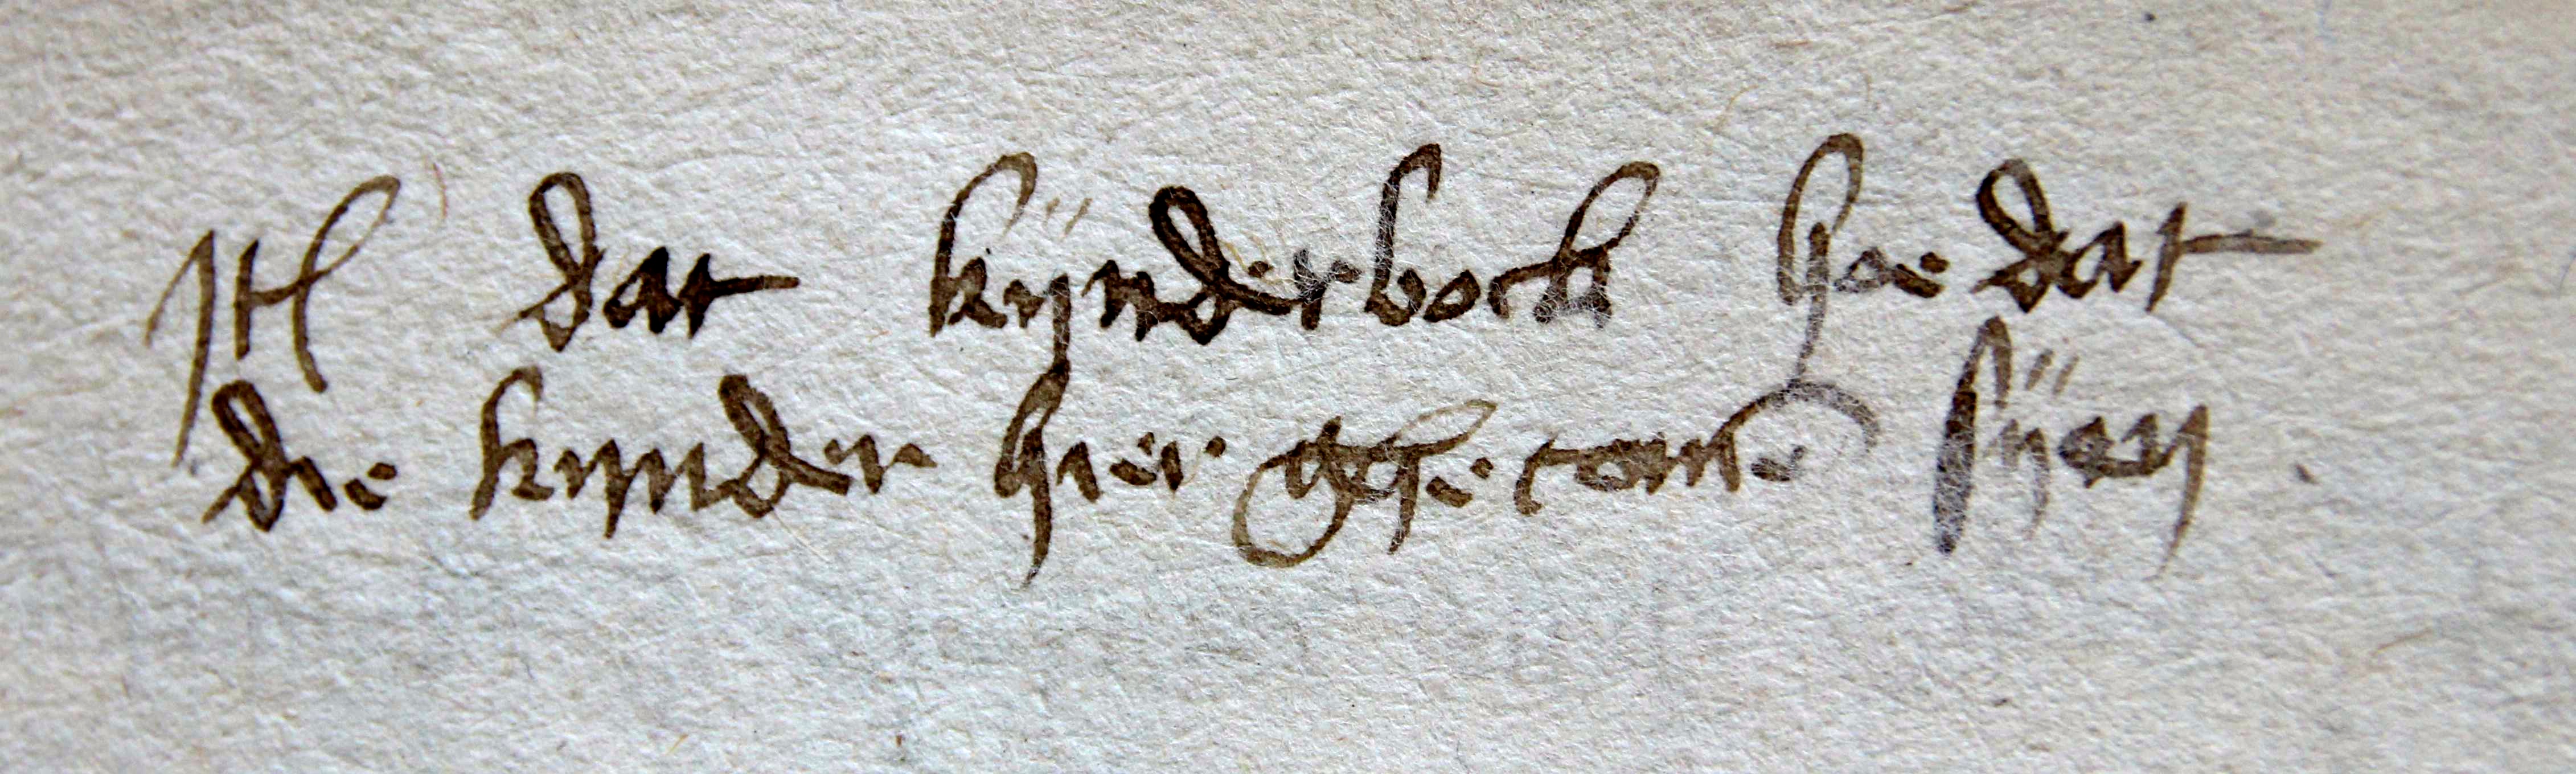 It dat kÿnderbock hoe dat
die kynder hier ghecome sÿen